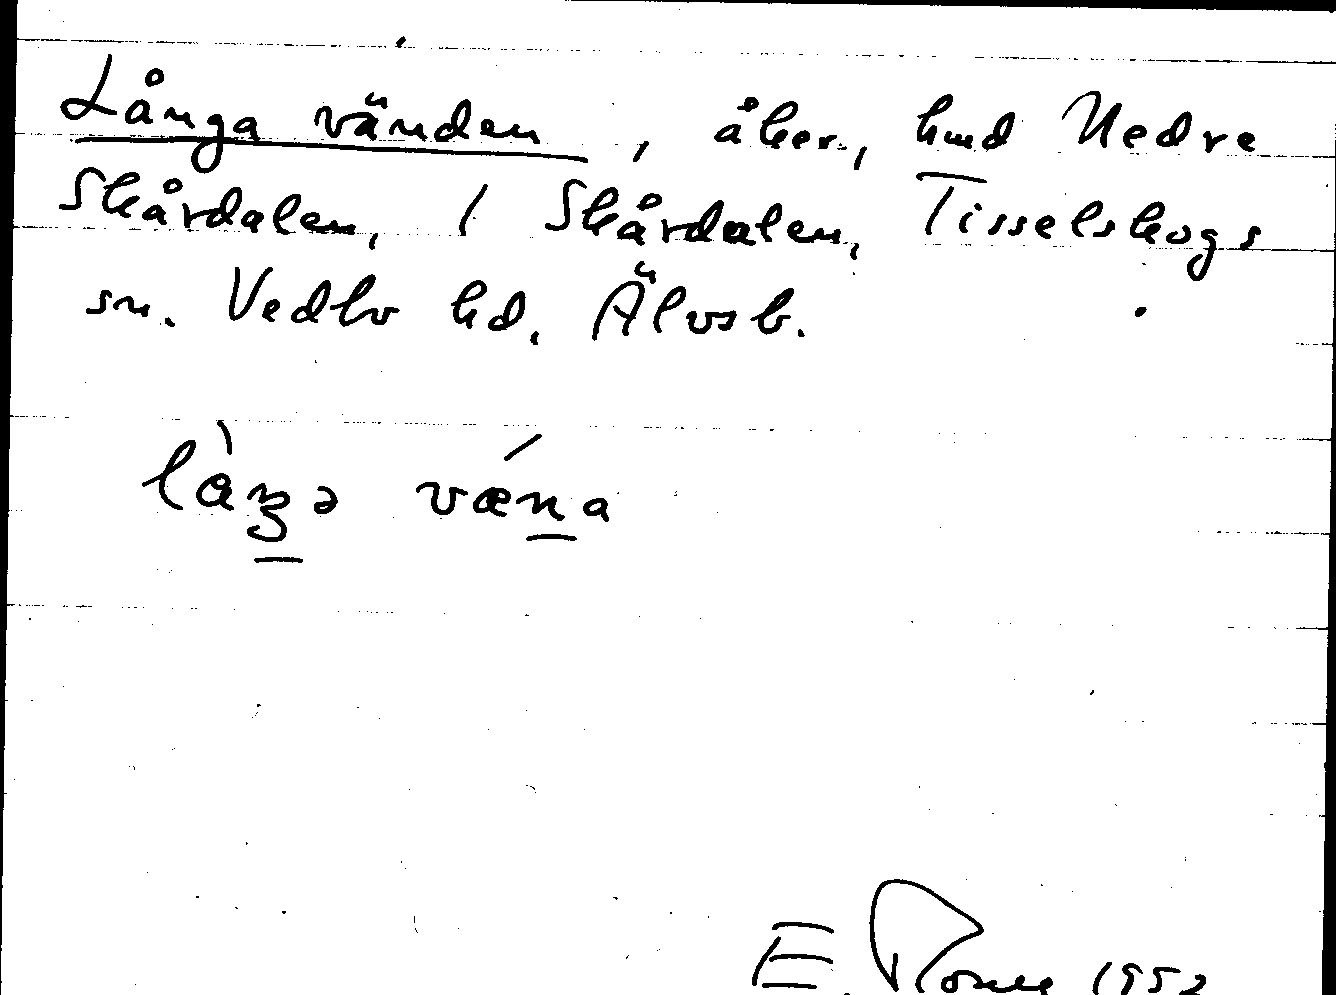 Långa vänden, åker, hmd Nedre
Skårdalen, / Skårdalen, Tisselskogs
sn. Vedbo hd. Älvsb.
làꞑə vǽna
E. 1952